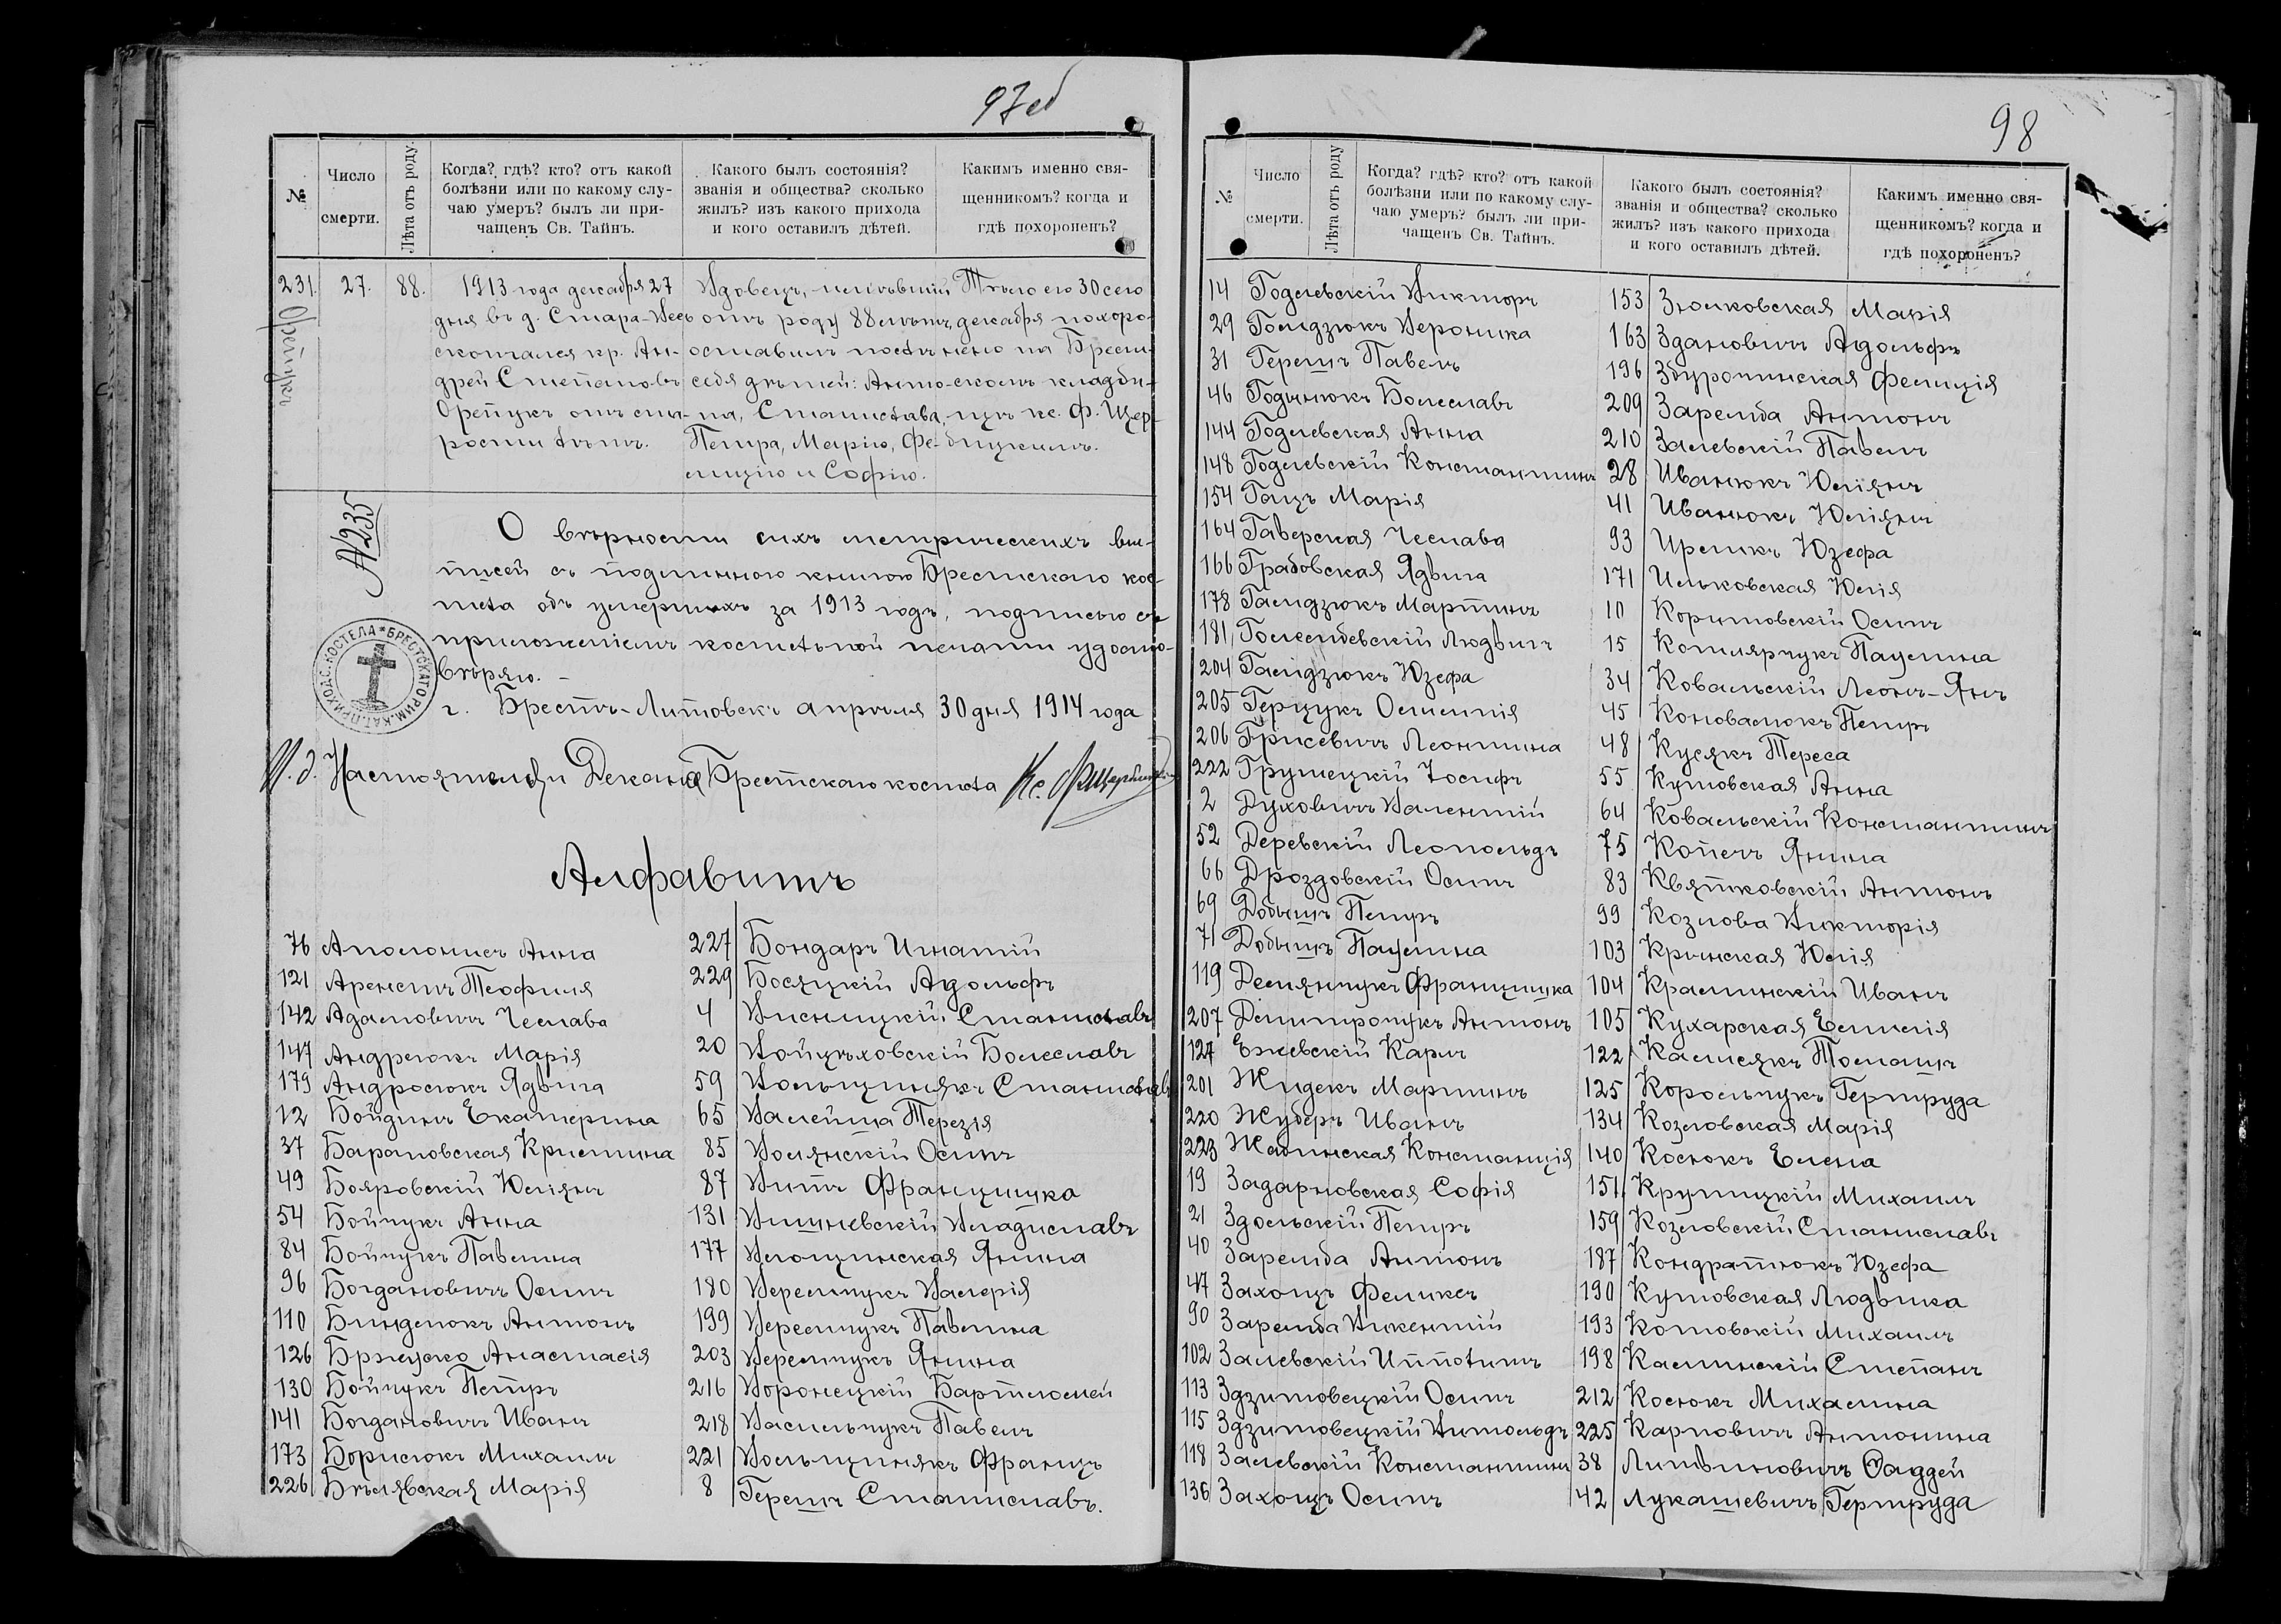 97об
№
Число
смерти.
Лѣта отъ роду.
Когда? гдѣ? кто? отъ какой
болѣзни или по какому слу-
чаю умеръ? былъ ли при-
чащенъ Св. Тайнъ.
Какого былъ состоянія?
званія и общества? сколько
жилъ? изъ какого прихода
и кого оставилъ дѣтей.
Какимъ именно свя-
щенникомъ? когда и
гдѣ похороненъ?
231.
Орепукъ
27.
88.
1913 года декабря 27
дня въ д. Стара-Весь
скончался кр. Ан-
дрей Степановъ
Орепукъ отъ ста-
рости лѣтъ.
Вдовецъ, имѣвшій
отъ роду 88 лѣтъ
оставилъ послѣ
себя дѣтей: Анто-
на, Станислава,
Петра, Марію, Фе-
лицію и Софію.
Тѣло его 30 сего
декабря похоро-
нено на Брест-
скомъ кладби-
щѣ кс. Ф. Щер-
бицкимъ.
№235
О вѣрности сихъ метрическихъ вы-
писей съ подлинною книгою Брестскаго кос-
тела объ умершихъ за 1913 годъ, подписью съ
приложеніемъ костельной печати удосто-
вѣряю. –
г. Брестъ-Литовскъ апрѣля 30 дня 1914 года
БРЕСТСКАГО РИМ.КАТ.ПРИХОДС.КОСТЕЛА
И. д. Настоятеля и Декана Брестскаго костела Кс. Ф. Щербицкій
Алфавитъ
76 Аполонисъ Анна
121 Аренсимъ Теофиля
142 Адамовичъ Чеслава
147 Андреюкъ Марія
179 Андросюкъ Ядвига
12 Бойдинъ Екатерина
37 Барановская Кристина
49 Бояровскій Юліянъ
54 Бойчукъ Анна
84 Бойчукъ Павелина
96 Богдановичъ Осипъ
110 Бинделюкъ Антонъ
126 Бржуско Анастасія
130 Бойчукъ Петръ
141 Богдановичъ Иванъ
173 Борисюкъ Михаилъ
226 Бѣлявская Марія
227 Бондаръ Игнатій
229 Босяцкій Адольфъ
4 Висницкій Станиславъ
20 Войцѣховскій Болеславъ
59 Вольцинякъ Станиславъ
65 Валейша Терезія
85 Волянскій Осипъ
87 Витъ Францишка
131 Вишневскій Владиславъ
177 Влощинская Янина
180 Веремчукъ Валерія
199 Веремчукъ Павелина
203 Веремчукъ Янина
216 Воронецкій Бартломей
218 Васильчукъ Павелъ
221 Вольцинякъ Францъ
8 Герешъ Станиславъ.
98
№
Число
смерти.
Лѣта отъ роду
Когда? гдѣ? кто? отъ какой
болѣзни или по какому слу-
чаю умеръ? былъ ли при-
чащенъ Св. Тайнъ.
Какого былъ состоянія?
званія и общества? сколько
жилъ? изъ какого прихода
и кого оставилъ дѣтей.
Какимъ именно свя-
щенникомъ? когда и
гдѣ похороненъ?
14 Годлевскій Викторъ
29 Голидзюкъ Вероника
31 Герешъ Павелъ
46 Годынюкъ Болеславъ
144 Годлевская Анна
148 Годлевскій Константинъ
154 Гацъ Марія
164 Гаверская Чеслава
166 Грабовская Ядвига
178 Галидзюкъ Мартинъ
181 Голембевскій Людвигъ
204 Галидзюкъ Юзефа
205 Герцукъ Осмилія
206 Грисевичъ Леонтина
222 Грушецкій Іосифъ
2 Духовичъ Валентій
52 Деревскій Леопольдъ
66 Дроздовскій Осипъ
69 Добышъ Петръ
71 Добышъ Паулина
119 Демянчукъ Францишка
207 Демитрочукъ Антонъ
127 Ежевскій Карлъ
201 Жидекъ Мартинъ
220 Жуберъ Иванъ
223 Жаинская Констанція
19 Задарновская Софія
21 Здольскій Петръ
40 Заремба Антонъ
47 Захоцъ Феликсъ
90 Заремба Викентій
102 Залевскій Ипполитъ
113 Здзитовецкій Осипъ
115 Здзитовецкій Витольдъ
118 Залевскій Константинъ
136 Захоцъ Осипъ
153 Зюлковская Марія
163 Здановичъ Адольфъ
196 Збурочинская Фелиція
209 Заремба Антонъ
210 Залевскій Павелъ
28 Иванюкъ Юліянъ
41 Иванюкъ Юліянъ
93 Иремикъ Юзефа
171 Ильковская Юлія
10 Корытовскій Осипъ
15 Котлярчукъ Паулина
34 Ковальскій Леонъ-Янъ
45 Коновалюкъ Петръ
48 Кусякъ Тереса
55 Кутовская Анна
64 Ковальскій Константинъ
75 Копечъ Янина
83 Квятковскій Антонъ
99 Козлова Викторія
103 Крынская Юлія
104 Красинскій Иванъ
105 Кухарская Емилія
122 Калисякъ Томашъ
125 Корольчукъ Гертруда
134 Козловская Марія
140 Косюкъ Елена
151 Крупицкій Михаилъ
159 Козловскій Станиславъ
187 Кондратюкъ Юзефа
190 Кутовская Людвика
193 Котовскій Михаилъ
198 Калинскій Степанъ
212 Косюкъ Михалина
225 Карповичъ Антонина
38 Литвиновичъ Ѳаддей
42 Лукашевичъ Гертруда